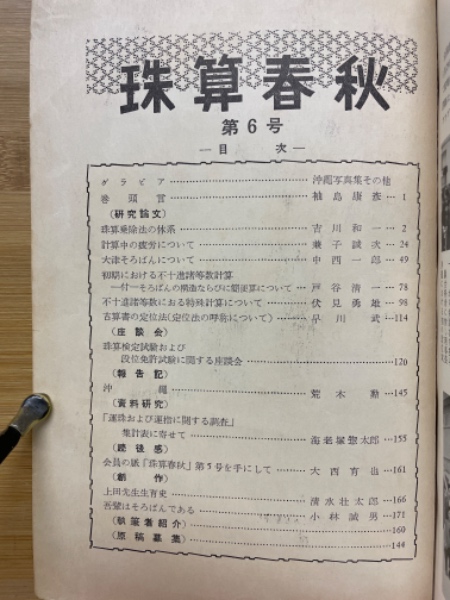 珠算春秋
第6号
―目　次―
グラビア……沖縄写真集その他
巻頭言……柚島康彦… 1
(研究論文)
珠算乗除法の体系……吉川和一… 2
計算中の疲労について……兼子誠次… 24
大津そろばんについて……中西一郎… 49
初期における不十進諸等数計算
―付―そろばんの構造ならびに簡便算について…戸谷清一… 78
不十進諸等数における特殊計算について……伏見勇雄… 98
古算書の定位法(定位法の呼称について)……早川　武…114
(座談会)
珠算検定試験および
段位免許試験に関する座談会……120
(報告記)
沖　縄……荒木　勲…145
(資料研究)
「運珠および運指に関する調査」
集計表に寄せて……海老塚惣太郎…155
(読後感)
会員の緘「珠算春秋」第5号を手にして……大西育出…161
(創作)
上田先生生有史……清水壮太郎…166
吾輩はそろばんである……小林誠男…171
(執筆者紹介)……160
(原稿募集)……144